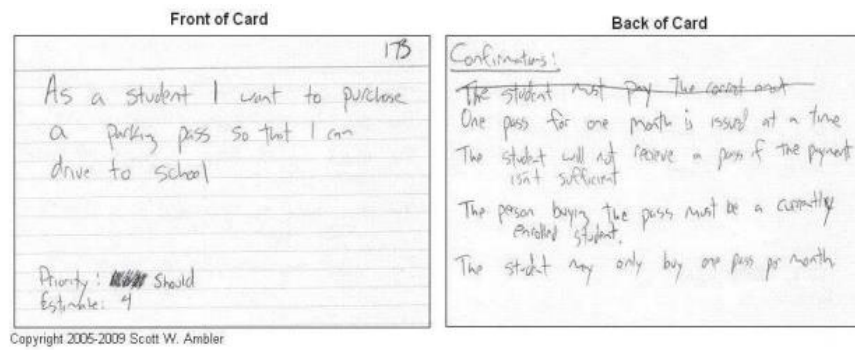 Front of Card
173
As a student I want to purchase
a parking pass so that I can
drive to school
Priority: Should
Estimate: 4
Back of Card
Confirmations:
The student must pay the correct amt
One pass for one month is issued at a time
The student will not receive a pass if the payment
isn't sufficient
The person buying the pass must be a currently
enrolled student.
The student may only buy one pass per month
Copyright 2005-2009 Scott W. Ambler